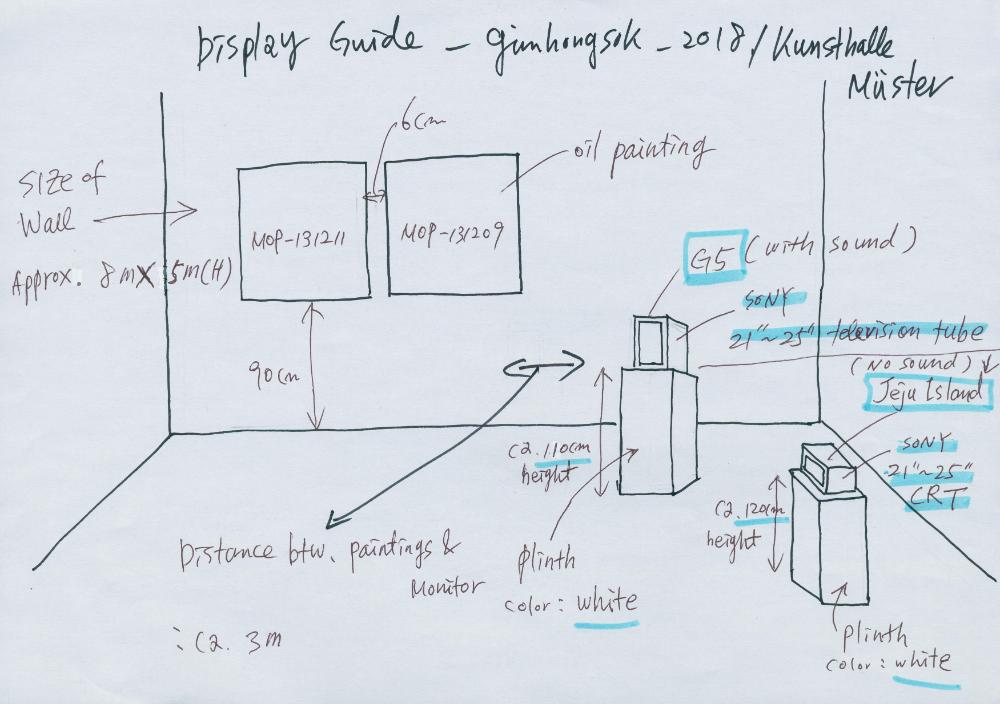 Display Guide - gimhongsok - 2018 / Kunsthalle
Müster
6cm
oil painting
Size of
Wall
Approx. 8m X 5m(H)
MOP-131211
MOP-131209
G5 (with sound)
SONY
21"~25" television tube
(No sound)
Jeju Island
SONY
21"~25"
CRT
90cm
C2.110cm
height
C2.120cm
height
Distance btw. paintings &
Monitor
: C2. 3m
plinth
color: white
plinth
color: white